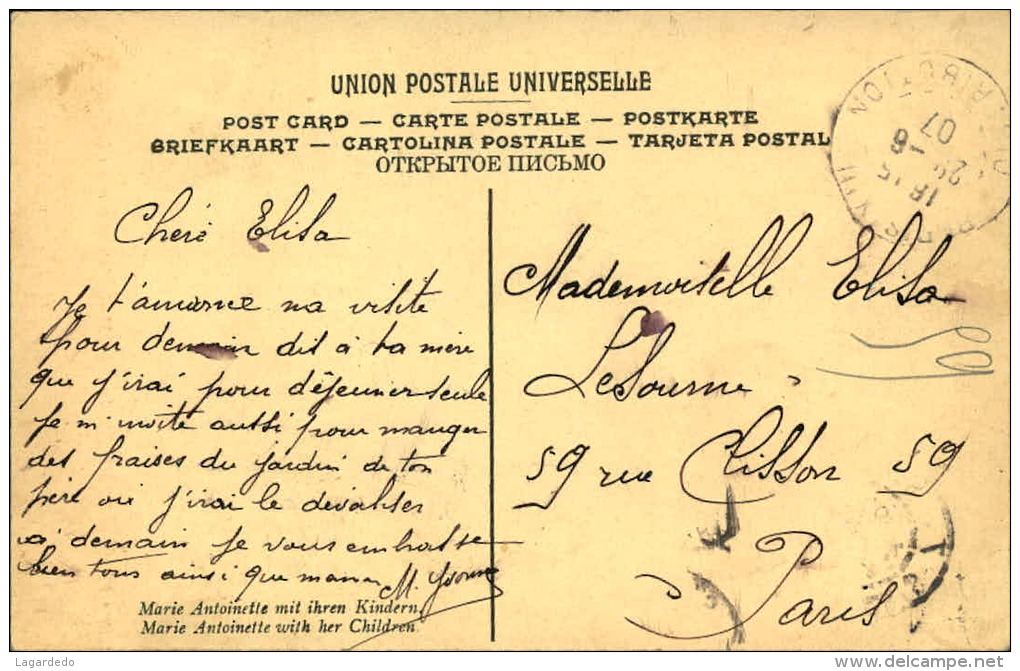 UNION POSTALE UNIVERSELLE
POST CARD — CARTE POSTALE — POSTKARTE
BRIEFKAART — CARTOLINA POSTALE — TARJETA POSTAL
ОТКРЫТОЕ ПИСЬМО
18 15
29 - 8
07
Cheré Elisa
Je t'annonce ma visite
pour demain dit à ta mère
que j'irai pour déjeuner seule
Je m'invite aussi pour manger
des fraises du jardin de ton
père où j'irai le devaliser
a demain Je vous embrasse
bien tous ainsi que maman
M. Yvonne
Mademoiselle Elisa
LeSourne
59 rue Clisson 59
Paris
59
Marie Antoinette mit ihren Kindern
Marie Antoinette with her Children
Lagardedo
www.delcampe.net